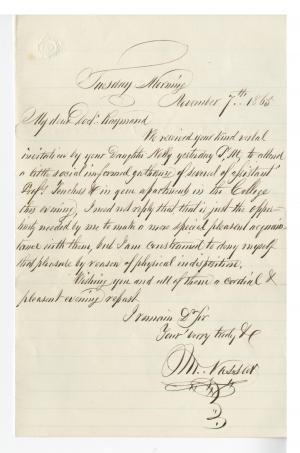 Tuesday Morning
November 7th 1865
My dear Doct. Raymond
We received your kind verbal
invitation by your Daughter Nelly yesterday P.M. to attend
a little social informal gathering of several of assistant
Prof's Teachers &c in your apartments in the College
this evening, I need not reply that that is just the oppor-
tunity needed by me to make a more special pleasant acquain-
tance with them, but I am constrained to deny myself
that pleasure by reason of physical indisposition.
Wishing you and all of them a cordial &
pleasant evening repast
I remain Dr Sir
Your very truly &c
M. Vassar